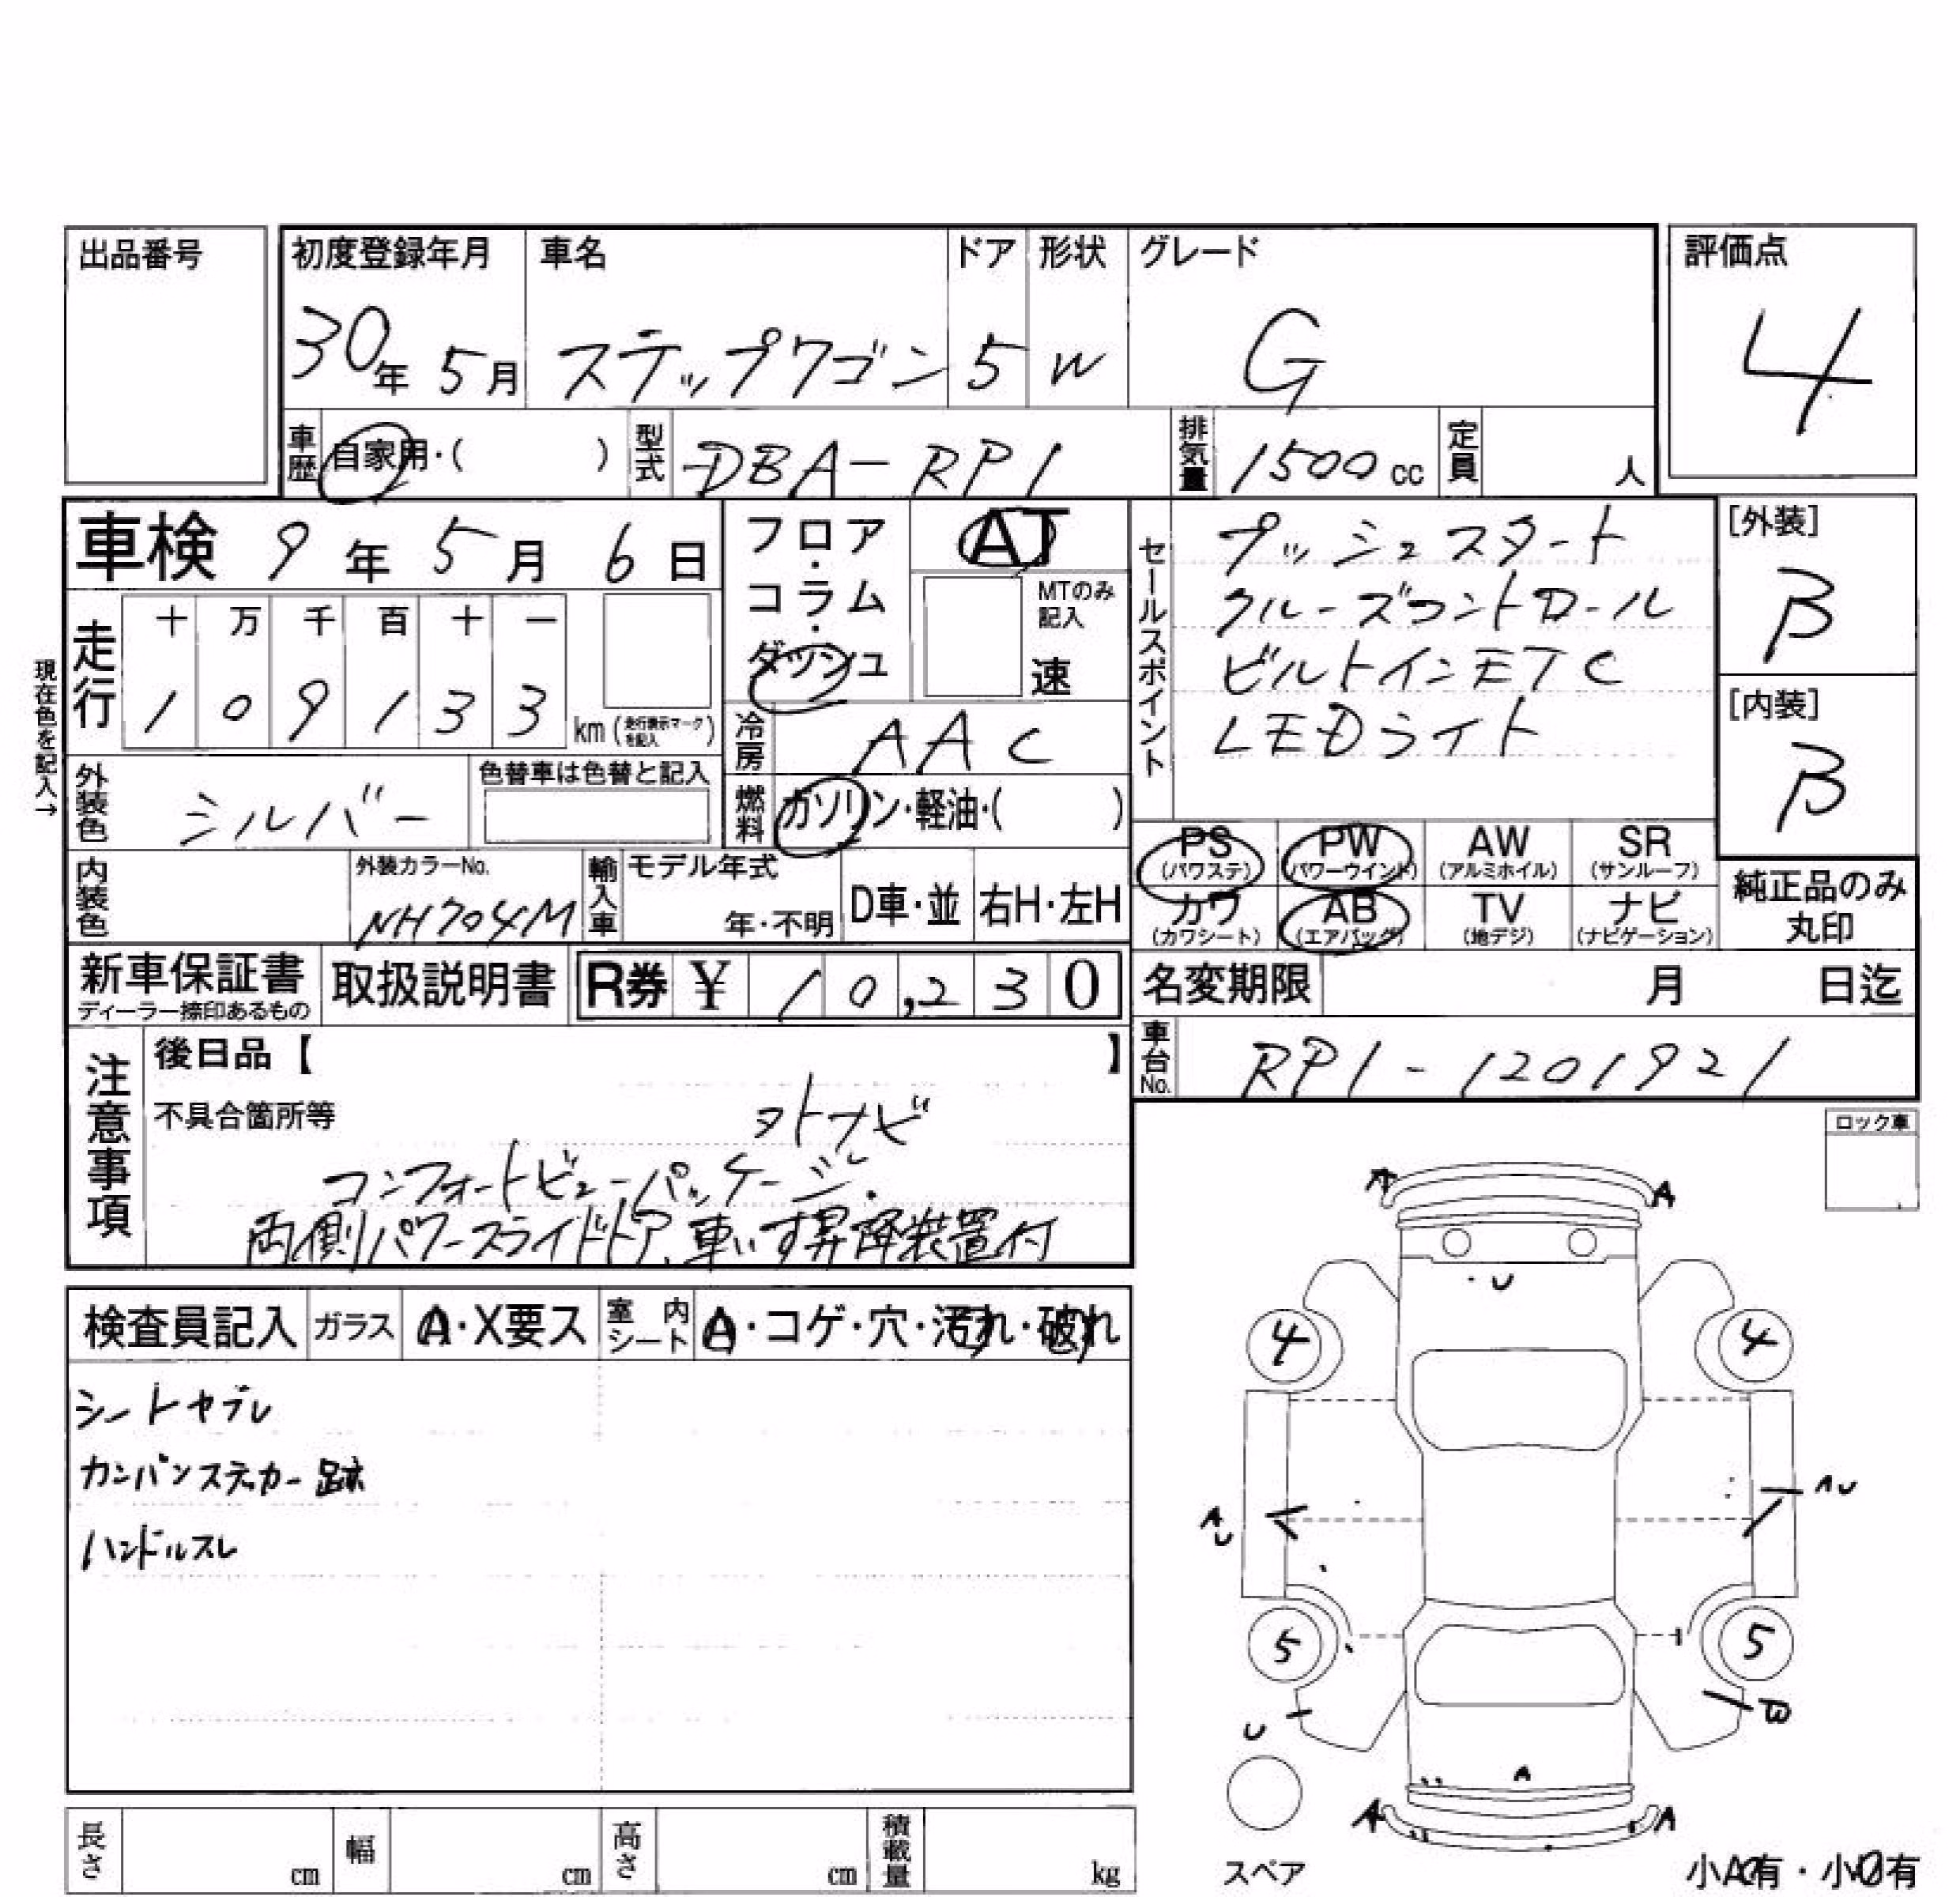 出品番号
初度登録年月 車名 ドア 形状 グレード 評価点
30年 5月 ステップワゴン 5 W G 4
車歴 自家用・( ) 型式 DBA-RP1 排気量 1500cc 定員 人
車検 9年 5月 6日
フロア・コラム・ダッシュ AT
MTのみ記入 速
セールスポイント
プッシュスタート
クルーズコントロール
ビルトインETC
LEDライト
[外装]
B
[内装]
B
現在色を記入→
走行 十 万 千 百 十 一
1 0 9 1 3 3 km (走行表示マークを記入)
冷房 AAC
外装色 シルバー 色替車は色替と記入
燃料 ガソリン・軽油・( )
PS (パワステ) PW (パワーウインド) AW (アルミホイル) SR (サンルーフ)
カワ (カワシート) AB (エアバッグ) TV (地デジ) ナビ (ナビゲーション)
純正品のみ丸印
内装色 外装カラーNo. NH704M 輸入車 モデル年式 年・不明 D車・並 右H・左H
新車保証書 ディーラー捺印あるもの 取扱説明書 R券 ¥ 10,230
名変期限 月 日迄
車台No. RP1-1201921
注意事項
後日品【 】
不具合箇所等
外ナビ
コンフォートビューパッケージ.
両側パワースライドドア、車いす昇降装置付
ロック車
検査員記入 ガラス A・X要ス 室内シート A・コゲ・穴・汚れ・破れ
シートヤブレ
カンバンステッカー跡
ハンドルスレ
A A
U
4 4
AU AU
5 5
U B
A
A A
スペア
小A有・小U有
長さ cm 幅 cm 高さ cm 積載量 kg